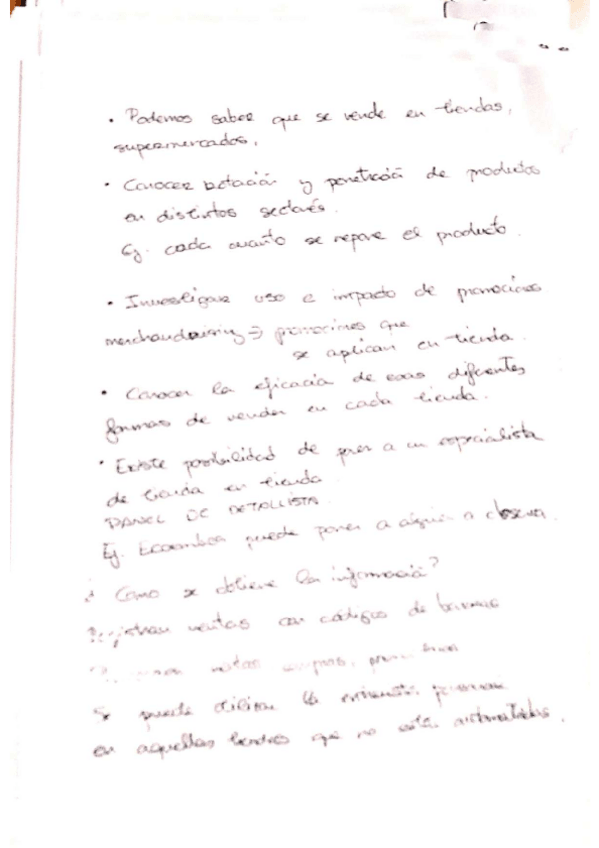 • Podemos saber que se vende en tiendas,
supermercados.
• Conocer rotación y penetración de productos
en distintos sectores.
Ej. cada cuanto se repone el producto.
• Investigar uso e impacto de promociones
merchandaising => promociones que
se aplican en tienda.
• Conocer la eficacia de esas diferentes
formas de vender en cada tienda.
• Existe posibilidad de poner a un especialista
de tienda en tienda
PANEL DE DETALLISTA
Ej. puede poner a alguien a observar
¿Como se obtiene la información?
Registran ventas con códigos de barras
notas compras,
Se puede utilizar la entrevista personal
en aquellas tiendas que no están automatizadas.